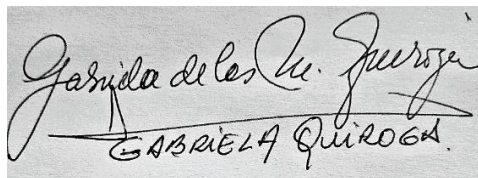 Gabriela de las M. Quiroga
GABRIELA QUIROGA.